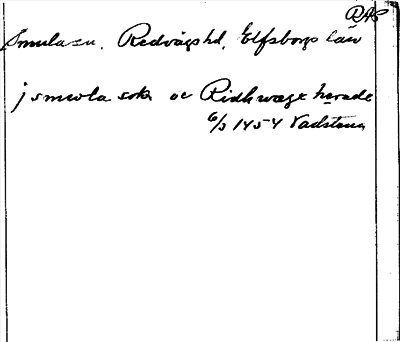 RAP
Smula sn, Redvägs hd, Elfsborgs län
j smwla sokn oc Ridhwægx hærade
6/5 1454 Vadstena